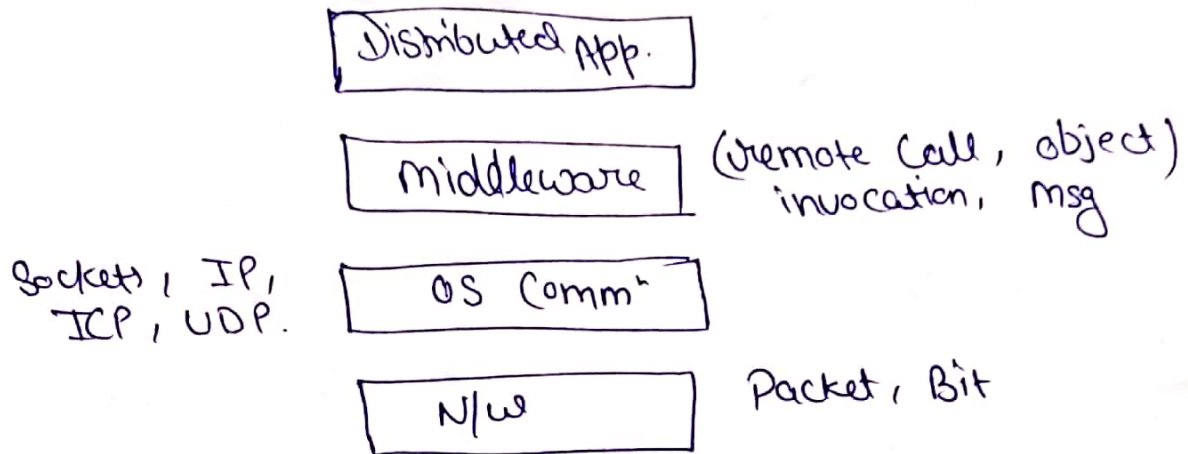 Distributed App.
Middleware
(remote Call, object)
invocation, msg
Sockets, IP,
TCP, UDP.
OS Commⁿ
N/W
Packet, Bit